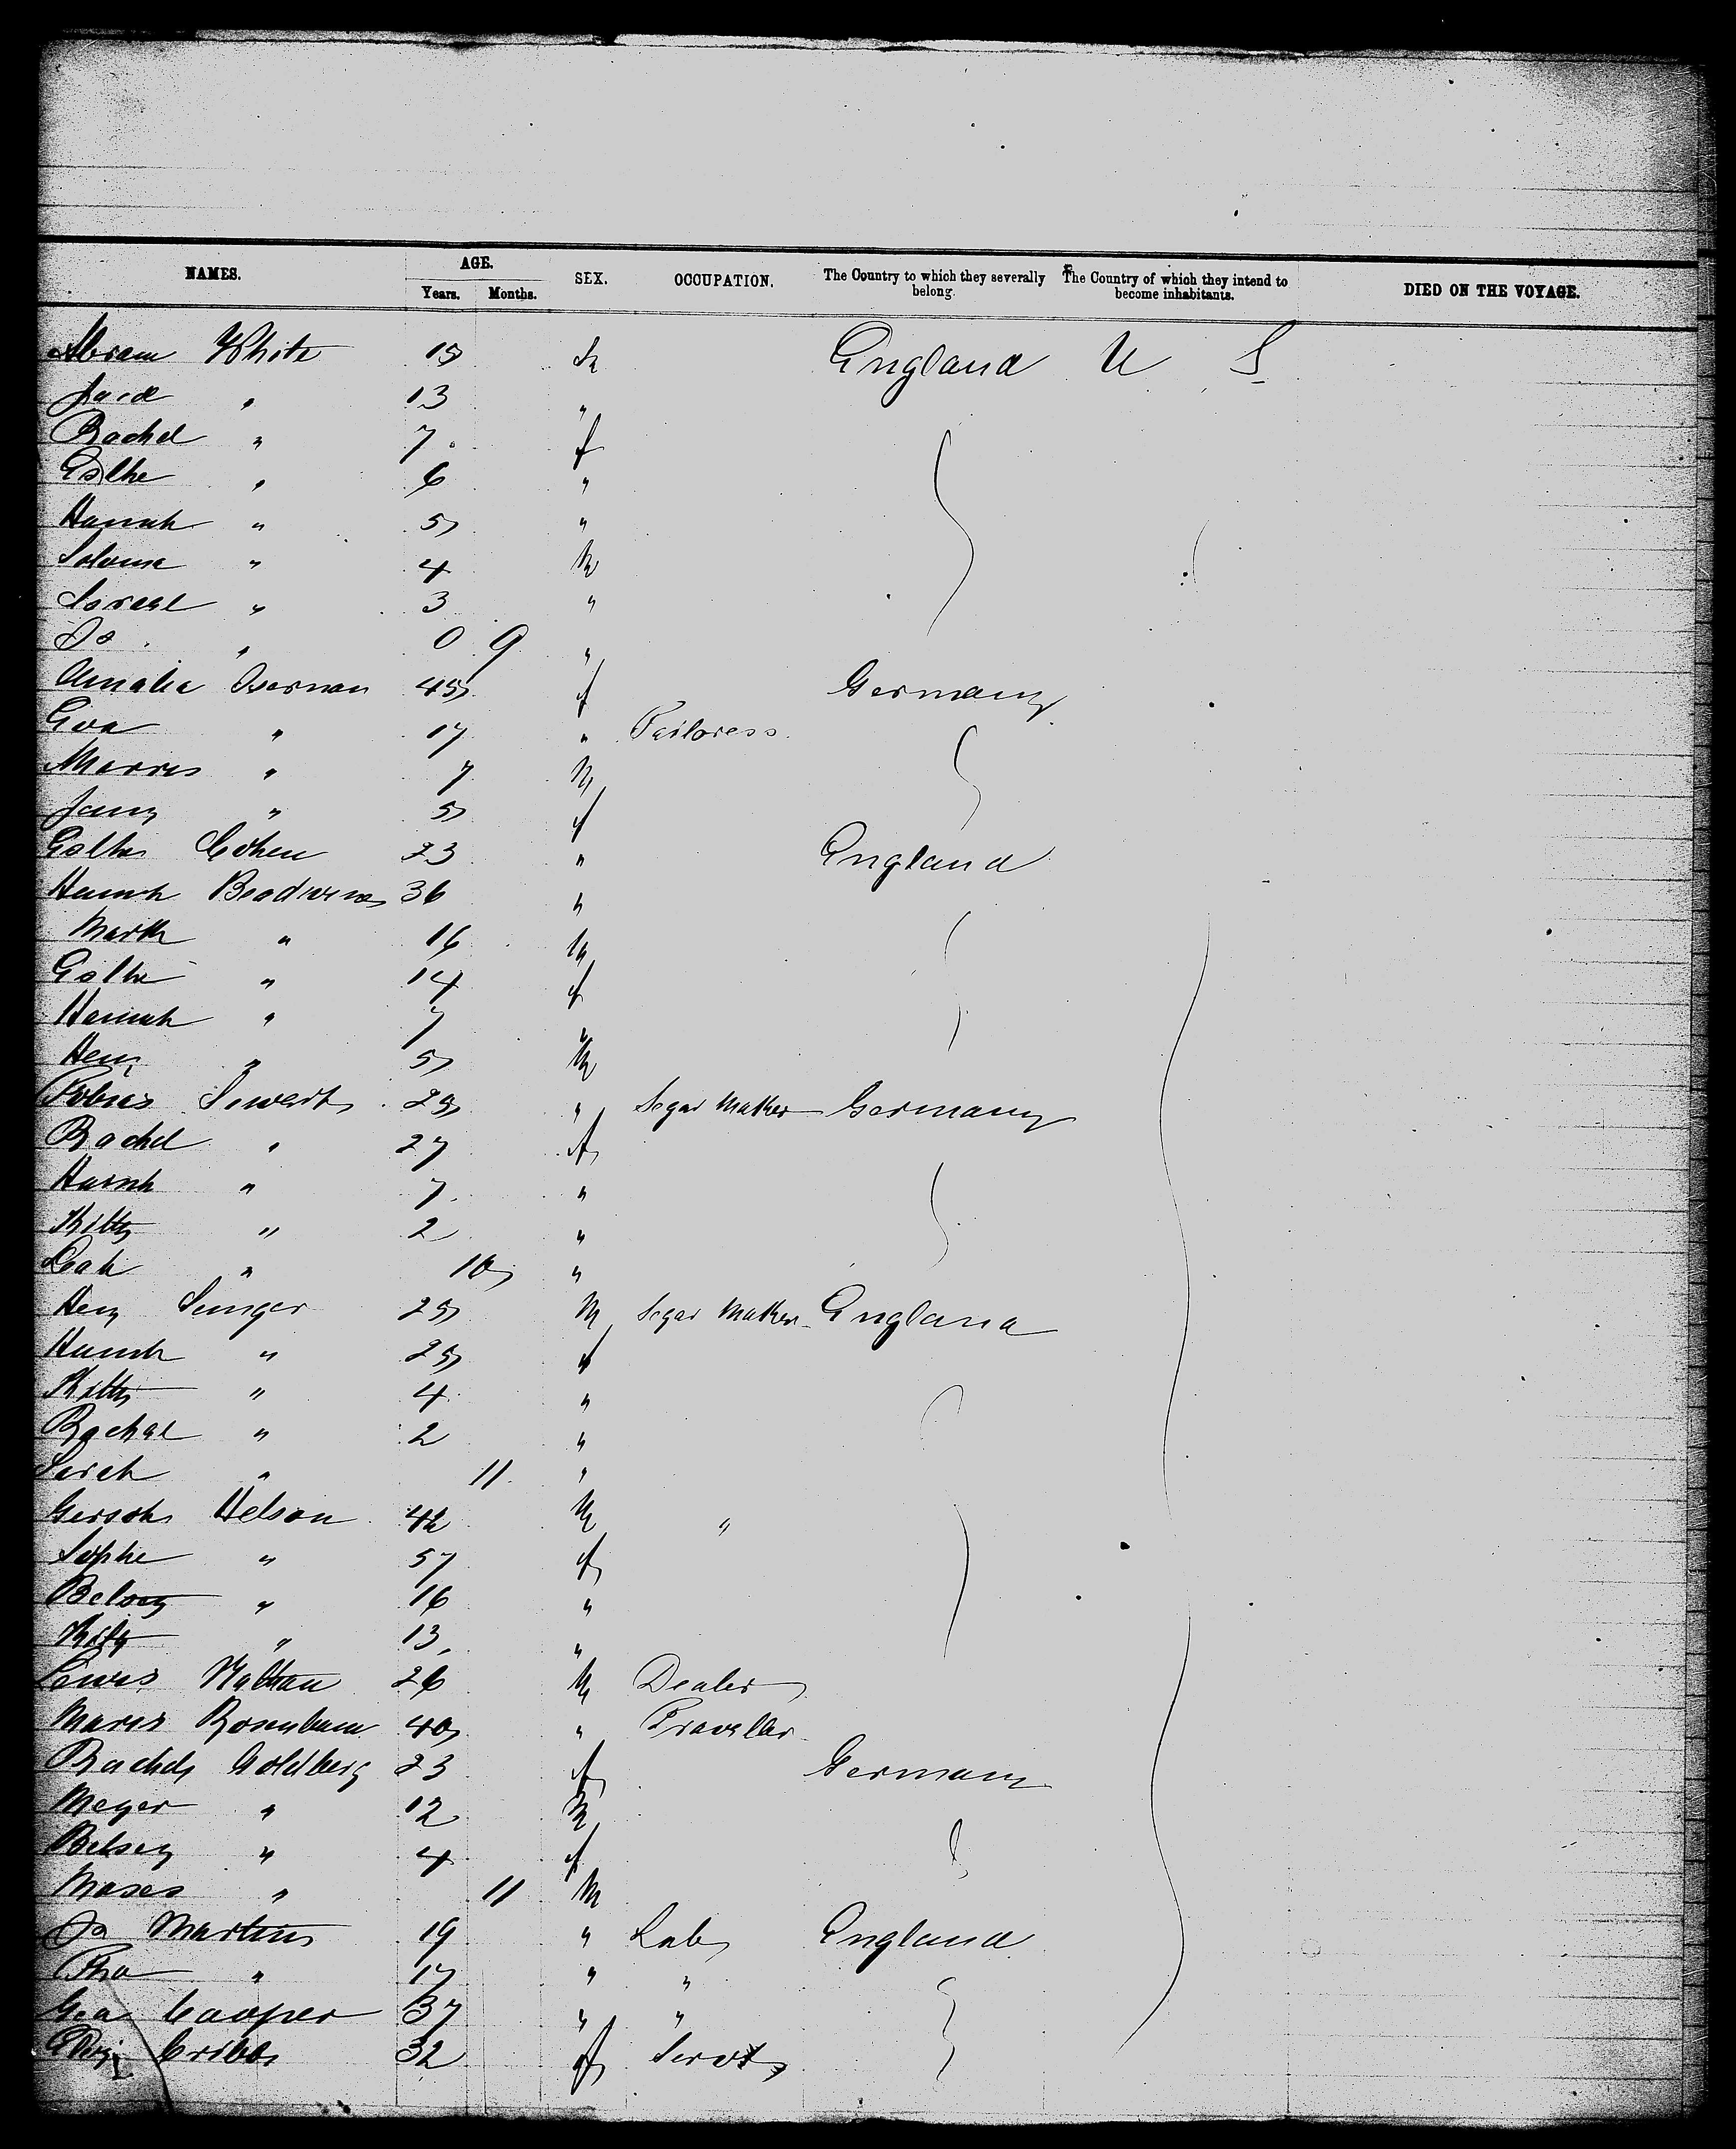 NAMES. AGE. SEX. OCCUPATION. The Country to which they severally belong. The Country of which they intend to become inhabitants. DIED ON THE VOYAGE.
Years. Months.
Abram White 15 M England U S
13 "
Rachel " 7 f
Esther " 6 "
Hannah " 5 "
Solomn " 4 M
Israel " 3 "
Jo " 0 9 "
Amalia Oserman 45 f Germany
Eva " 17 " Tailoress
Morris " 7 M
Fanny " 5 f
Esther Cohen 23 " England
Hannah 36 "
Mark " 16 M
Esther " 14 f
Hannah " 7 "
Heny " 5 M
Tobias Sewart 25 " Segar Maker Germany
Rachel " 27 f
Hannah " 7 "
Kitty " 2 "
Leah " 10 "
Heny Sunger 25 M Segar Maker England
Hannah " 25 f
Kitty " 4 "
Rachael " 2 "
Sarah " 11 "
Gersch Nelson 42 M "
Sophe " 57 f
Betsey " 16 "
Kity " 13 "
Lewis Nathan 26 M Dealer
Morris Rosenbaum 40 " Traveller
Rachel Goldberg 23 f Germany
Meyer " 12 M
Betsey " 4 f
Moses " 11 M
Jo Martin 19 " Lab England
Tho " 17 " "
Geo Cooper 37 " "
Cribbs 32 f Servt